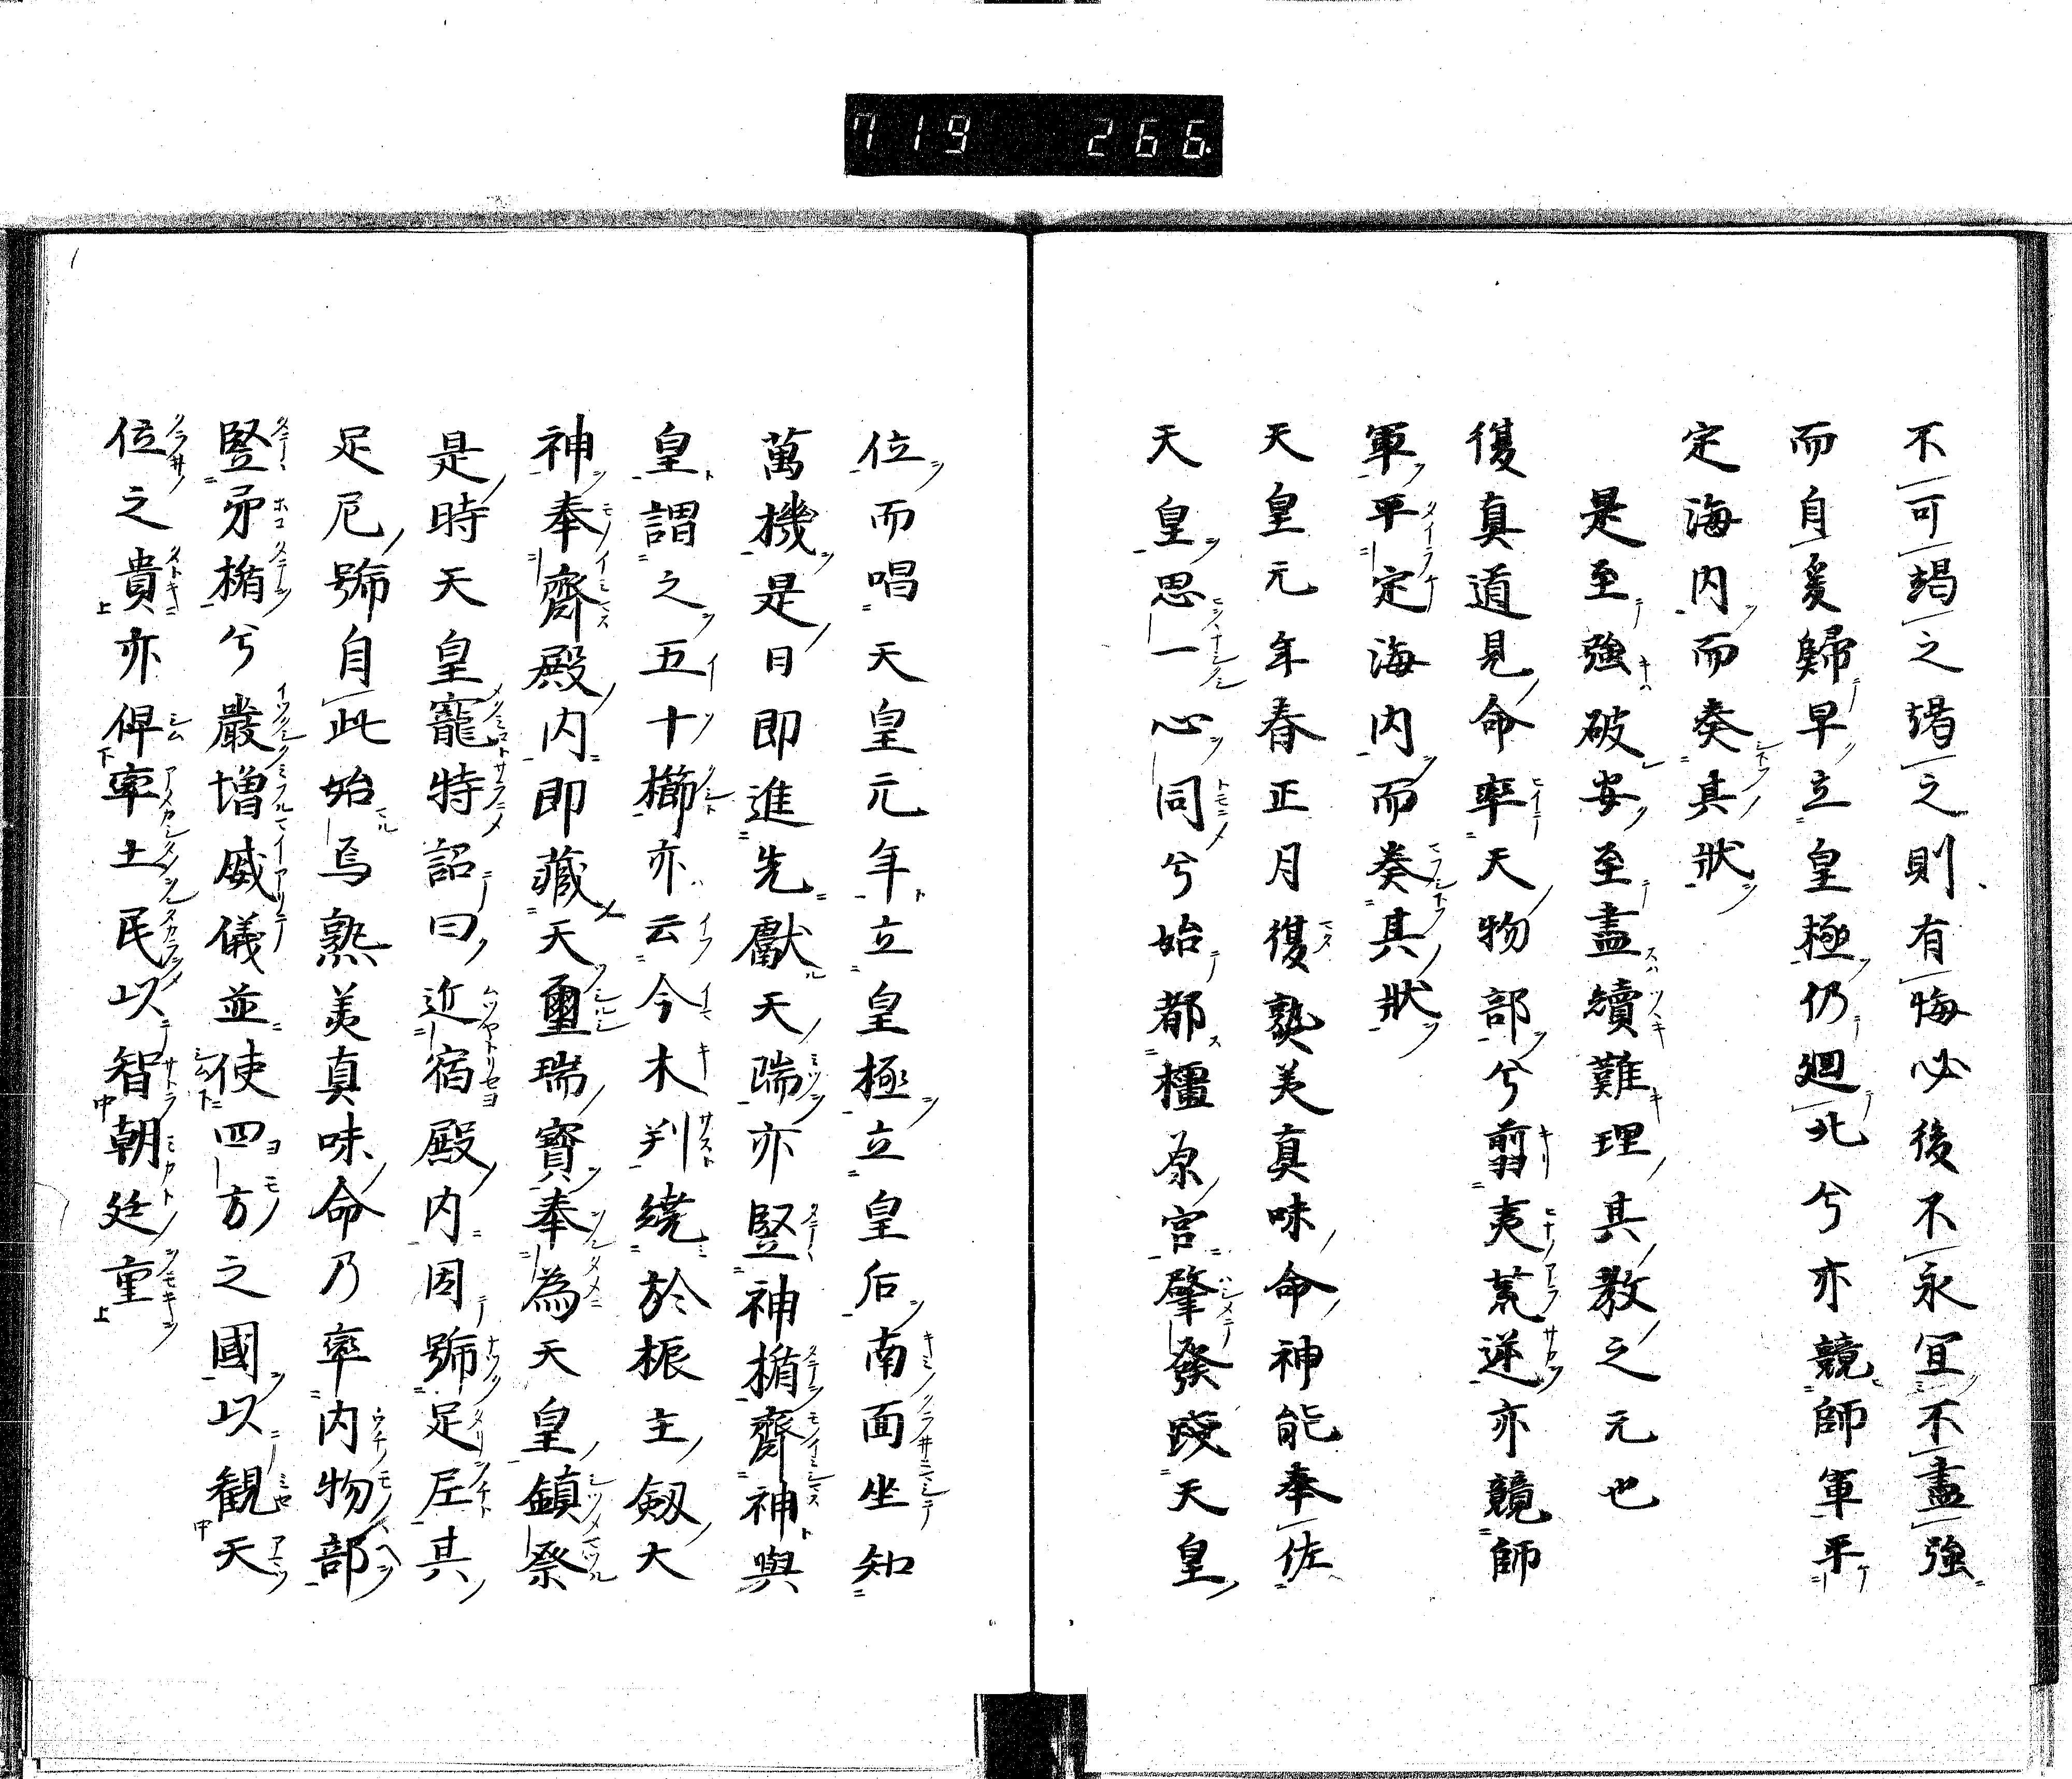 719 266
不可竭之竭之則有悔必後不永宜不盡強
而自爰歸早立皇極仍廻北兮亦競師軍平
定海内而奏其狀
是至強破安至盡續難理其教之元也
復真道見命率天物部兮翦夷荒逆亦競師
軍平定海内而奏其狀
天皇元年春正月復熟美真味命神能奉佐
天皇思一心同兮始都橿原宮肇發踐天皇
位而唱天皇元年立皇極立皇后南面坐知
萬機是日即進先獻天瑞亦竪神楯齊神與
皇謂之五十櫛亦云今木判繞於振主劔大
神奉齋殿内即藏天璽瑞寶奉為天皇鎮祭
是時天皇寵特詔曰近宿殿内因號足尼其
足尼號自此始焉熟美真味命乃率内物部
竪矛楯兮嚴増威儀並使四方之國以観天
位之貴亦俾率土民以智朝廷重